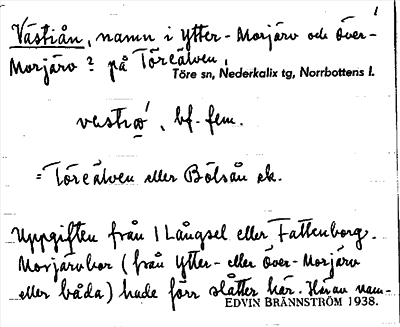 1
Västiån, namn i Ytter-Morjärv och Över-
Morjärv? på Töreälven,
Töre sn, Nederkalix tg, Norrbottens l.
vastio, bf. fem.
= Töreälven eller Bölsån ek.
Uppgiften från 1 Långsel eller Fattenborg.
Morjärvbor (från Ytter- eller Över-Morjärv
eller båda) hade förr slåtter här. Härav nam-
EDVIN BRÄNNSTRÖM 1938.